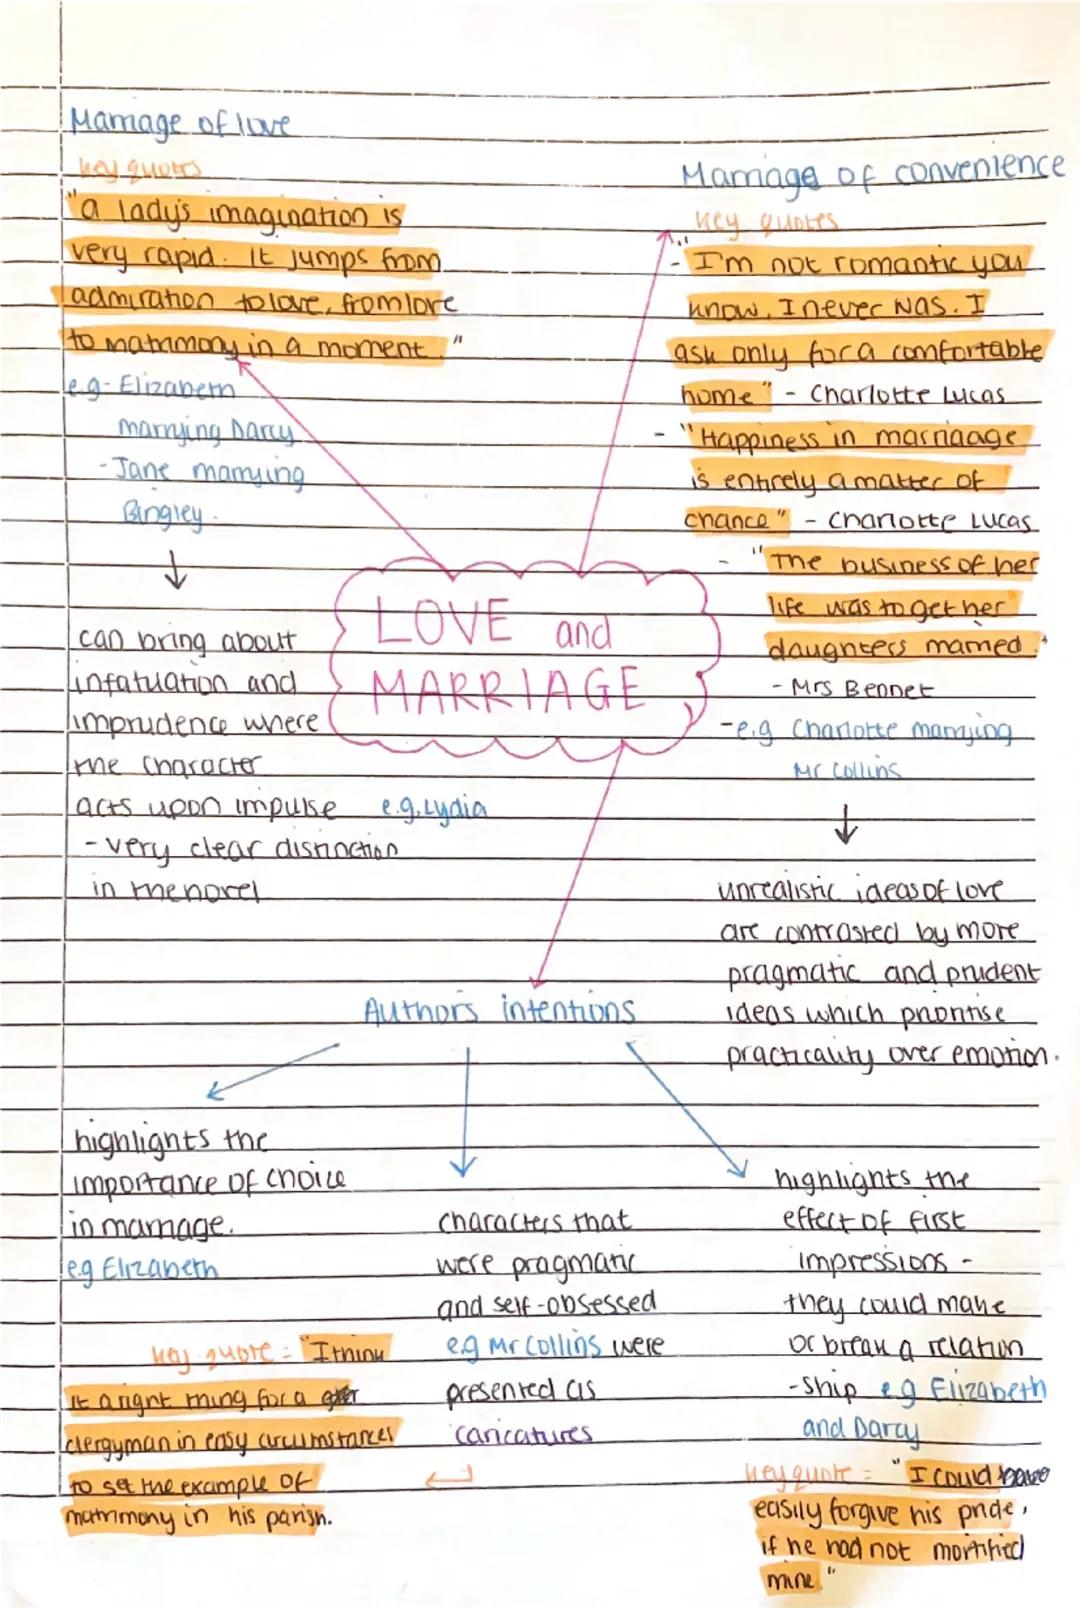 Marriage of love
key quotes
"a lady's imagination is
very rapid. It jumps from
admiration to love, from love
to matrimony in a moment."
e.g - Elizabeth
marrying Darcy
- Jane marrying
Bingley.
↓
can bring about
infatuation and
imprudence where
the character
acts upon impulse e.g. Lydia
- very clear distinction
in the novel
Marriage of convenience
key quotes
- "I'm not romantic you
know, I never was. I
ask only for a comfortable
home" - Charlotte Lucas
- "Happiness in marriaage
is entirely a matter of
chance" - Charlotte Lucas
- "The business of her
life was to get her
daughters married."
- Mrs Bennet
- e.g Charlotte marrying
Mr Collins
↓
unrealistic ideas of love
are contrasted by more
pragmatic and prudent
ideas which prioritise
practicality over emotion.
LOVE and
MARRIAGE
Authors intentions
highlights the
importance of choice
in marriage.
e.g Elizabeth
characters that
were pragmatic
and self-obsessed
e.g Mr Collins were
presented as
caricatures
key quote = "I think
it a right thing for a
clergyman in easy circumstances
to set the example of
matrimony in his parish.
highlights the
effect of first
impressions -
they could make
or break a relation
-ship e.g Elizabeth
and Darcy
key quote = "I could
easily forgive his pride,
if he had not mortified
mine."